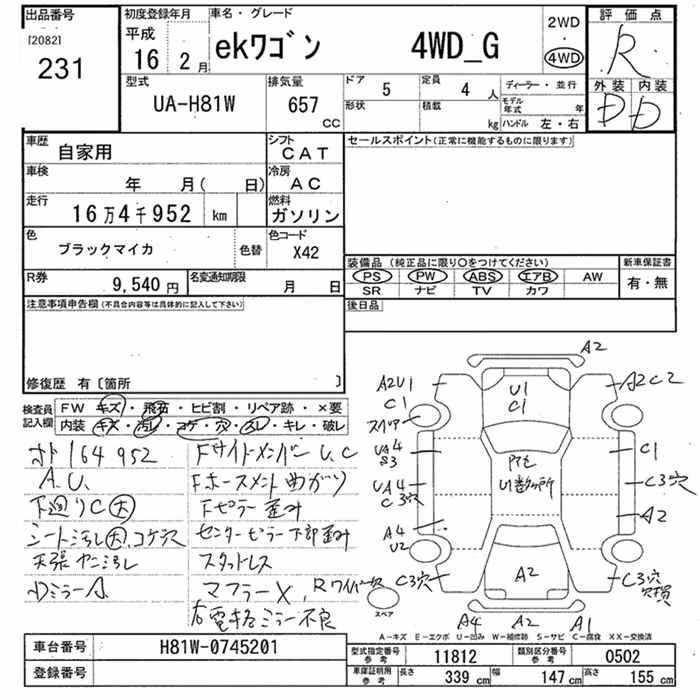 出品番号
[2082]
231
初度登録年月
平成
16 2月
車名・グレード
ekワゴン 4WD_G
2WD
4WD
評価点
R
外装 内装
D D
型式
UA-H81W
排気量
657
CC
ドア
5
定員
4 人
形状
積載
kg
ディーラー・並行
モデル年式 年
ハンドル 左・右
車歴
自家用
シフト
CAT
車検
年 月( 日)
冷房
AC
走行
16万4千952 km
燃料
ガソリン
色
ブラックマイカ
色替
色コード
X42
R券
9,540 円
名変通知期限
月 日
セールスポイント(正常に機能するものに限ります)
装備品(純正品に限り〇をつけてください)
PS PW ABS エアB AW
SR ナビ TV カワ
新車保証書
有・無
後日品
注意事項申告欄(不具合内容等は具体的に記入して下さい)
修復歴 有〔箇所 〕
検査員記入欄
FW キズ・飛石・ヒビ割・リペア跡・×要
内装・キズ・汚レ・コゲ・穴・スレ・キレ・破レ
メーター 164952
A.U.
下廻りC大
シート汚レ大、コゲ穴
天張ヤニ汚レ
Fサイドメンバー U,C
Fホースメント曲がり
Fピラー歪み
センターピラー下部歪み
スタッドレス
マフラーX、Rワイパー欠
右電格ミラー不良
A2
A2U1
C1
スペア
UA4
S3
UA4
C3穴
A4
U2
C3穴
U1
C1
U1数ヶ所
A2
A2C2
C1
C3穴
A2
C3穴
欠損
スペア
A4 A2 A1
A-キズ E-エクボ U-凹み W-補修跡 S-サビ C-腐食 XX-交換済
車台番号
H81W-0745201
登録番号
型式指定番号
参考
11812
類別区分番号
参考
0502
車庫証明用
参考
長さ
339 cm
幅
147 cm
高さ
155 cm